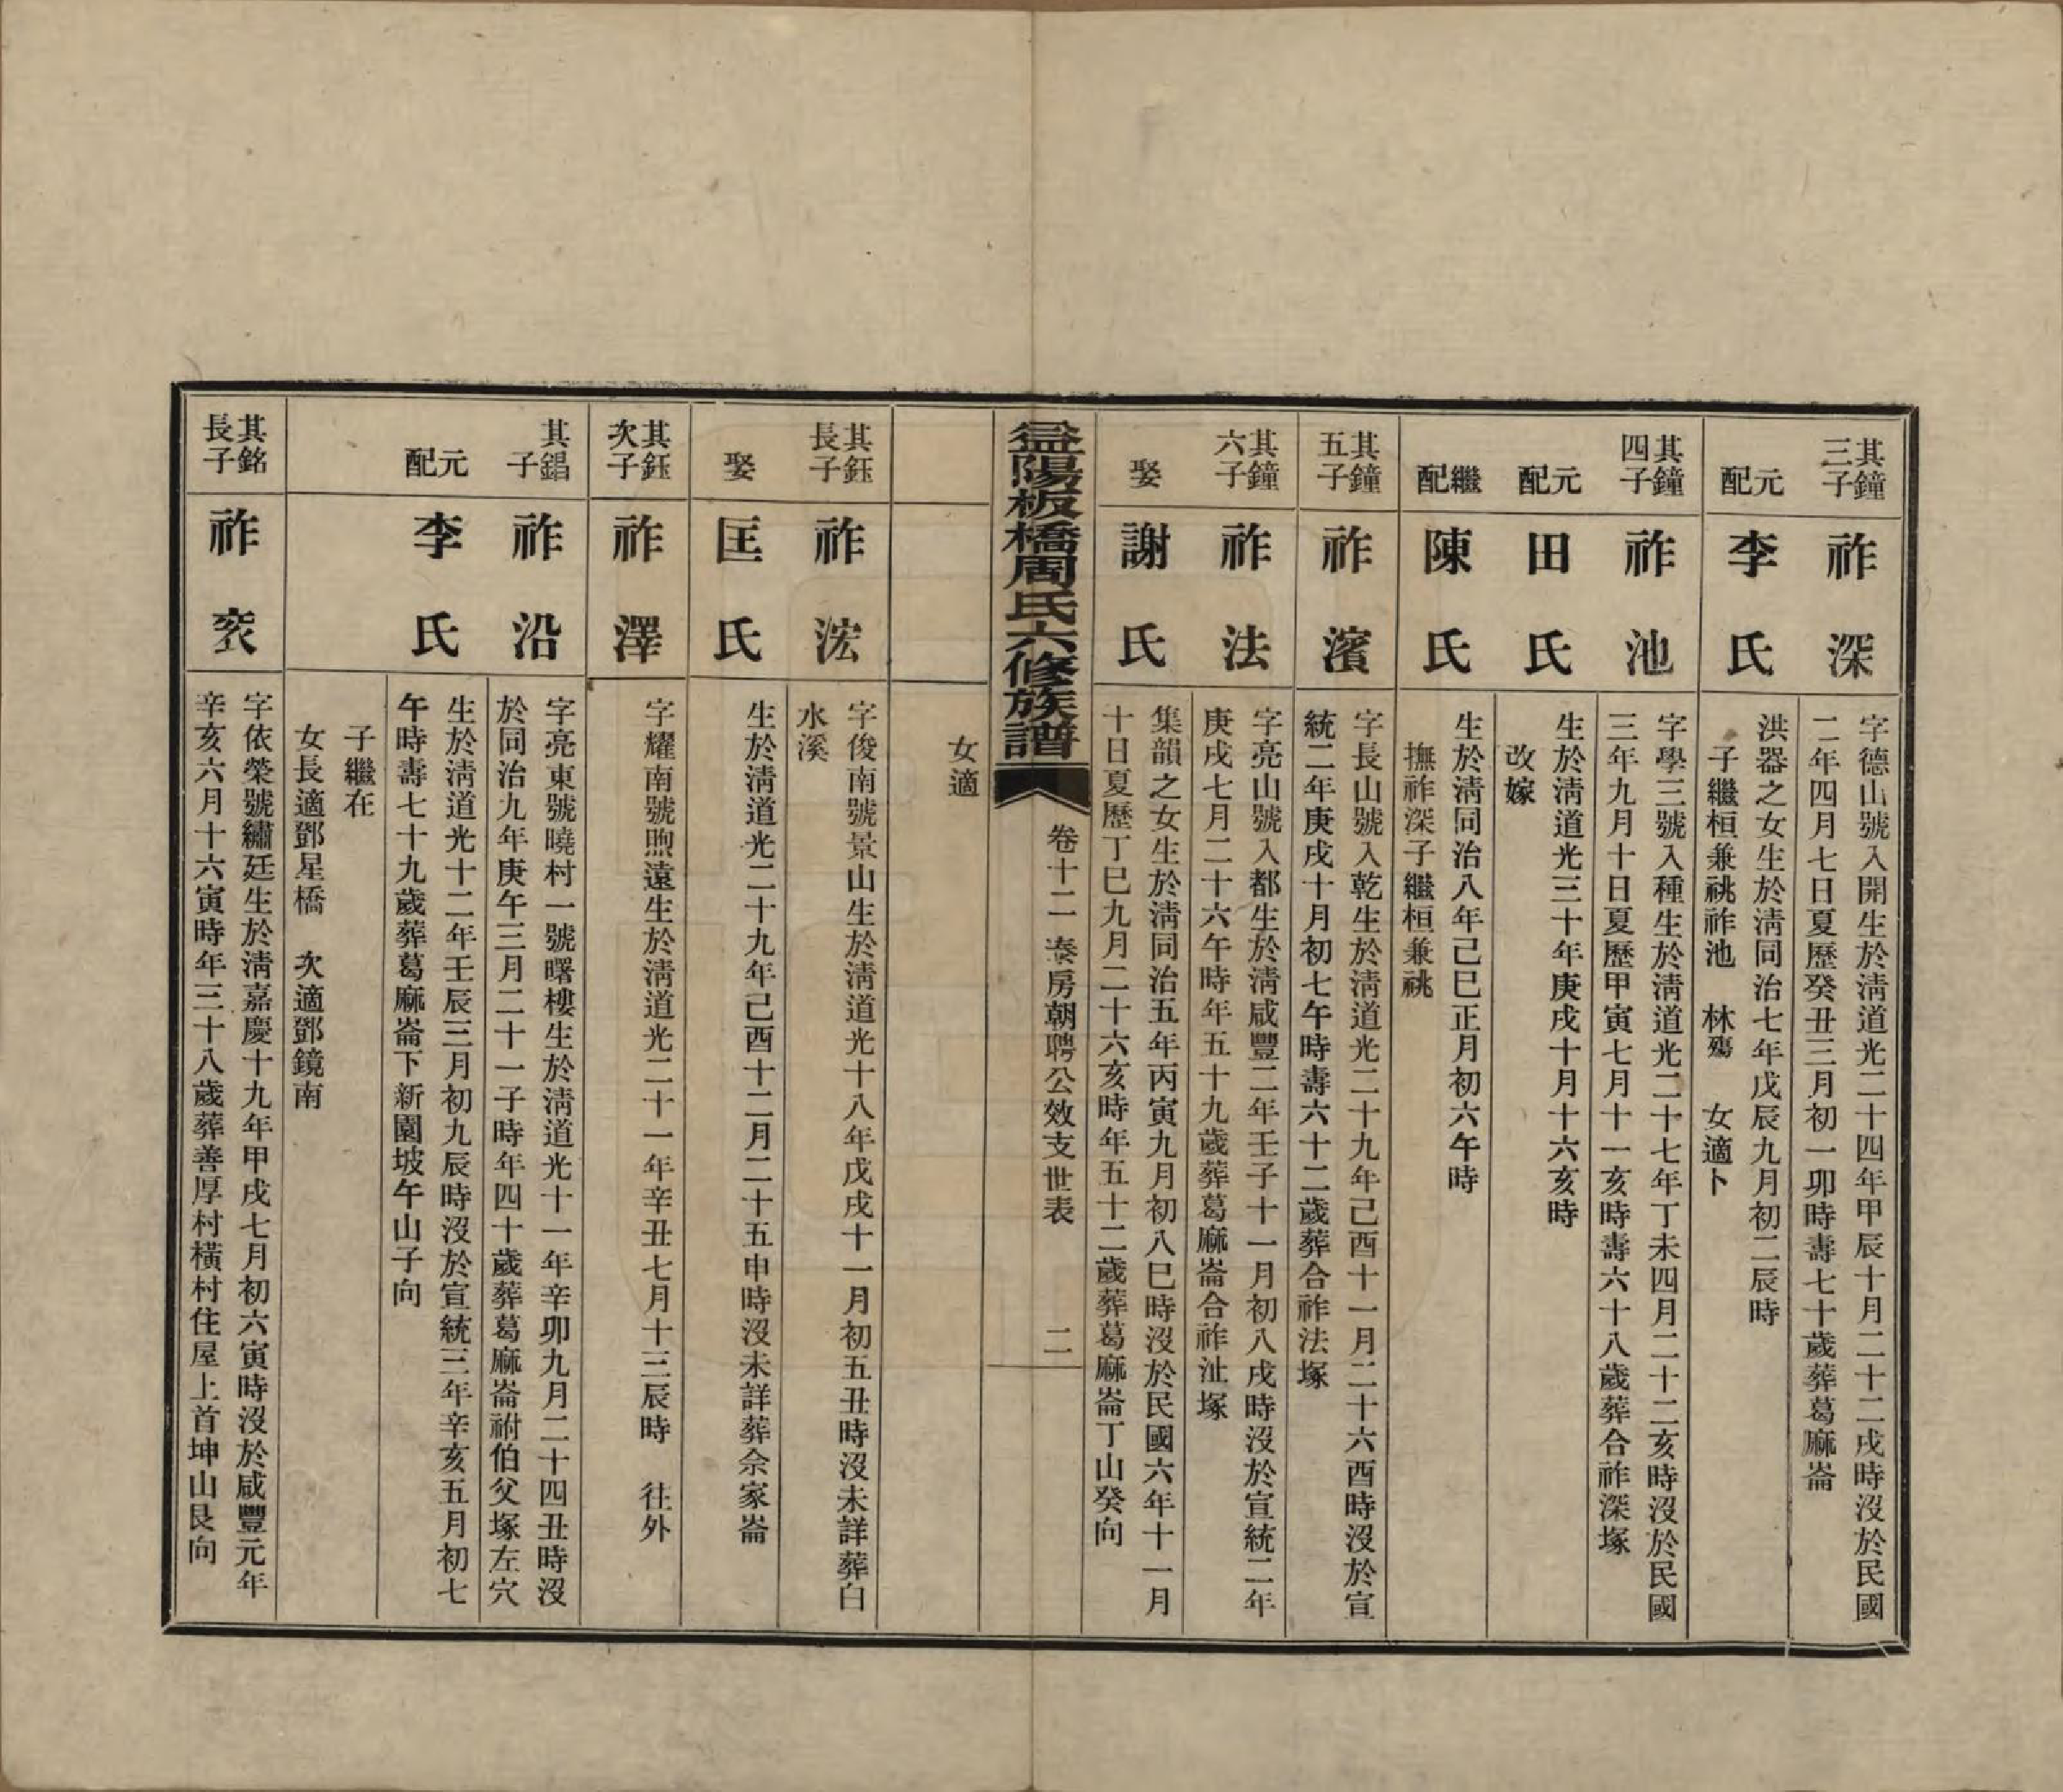 其鐘三子
祚深
字德山號入開生於清道光二十四年甲辰十月二十二戌時沒於民國
二年四月七日夏歷癸丑三月初一卯時壽七十歲葬葛麻崙
元配
李氏
洪器之女生於清同治七年戊辰九月初二辰時
子繼桓兼祧祚池 林殤 女適卜
其鐘四子
祚池
字學三號入種生於清道光二十七年丁未四月二十二亥時沒於民國
三年九月十日夏歷甲寅七月十一亥時壽六十八歲葬合祚深塚
元配
田氏
生於清道光三十年庚戌十月十六亥時
改嫁
繼配
陳氏
生於清同治八年己巳正月初六午時
撫祚深子繼桓兼祧
其鐘五子
祚濱
字長山號入乾生於清道光二十九年己酉十一月二十六酉時沒於宣
統二年庚戌十月初七午時壽六十二歲葬合祚法塚
其鐘六子
祚法
字亮山號入都生於清咸豐二年壬子十一月初八戌時沒於宣統二年
庚戌七月二十六午時年五十九歲葬葛麻崙合祚沚塚
娶
謝氏
集韻之女生於清同治五年丙寅九月初八巳時沒於民國六年十一月
十日夏歷丁巳九月二十六亥時年五十二歲葬葛麻崙丁山癸向
益陽板橋周氏六修族譜
卷十二 泰房朝聘公效支世表
二
女適
其鈺長子
祚浤
字俊南號景山生於清道光十八年戊戌十一月初五丑時沒未詳葬白
水溪
娶
匡氏
生於清道光二十九年己酉十二月二十五申時沒未詳葬佘家崙
其鈺次子
祚澤
字耀南號煦遠生於清道光二十一年辛丑七月十三辰時 往外
其錩子
祚沿
字亮東號曉村一號曙樓生於清道光十一年辛卯九月二十四丑時沒
於同治九年庚午三月二十一子時年四十歲葬葛麻崙祔伯父塚左穴
元配
李氏
生於清道光十二年壬辰三月初九辰時沒於宣統三年辛亥五月初七
午時壽七十九歲葬葛麻崙下新園坡午山子向
子繼在
女長適鄧星橋 次適鄧鏡南
其銘長子
祚袞
字依榮號繡廷生於清嘉慶十九年甲戌七月初六寅時沒於咸豐元年
辛亥六月十六寅時年三十八歲葬善厚村橫村住屋上首坤山艮向